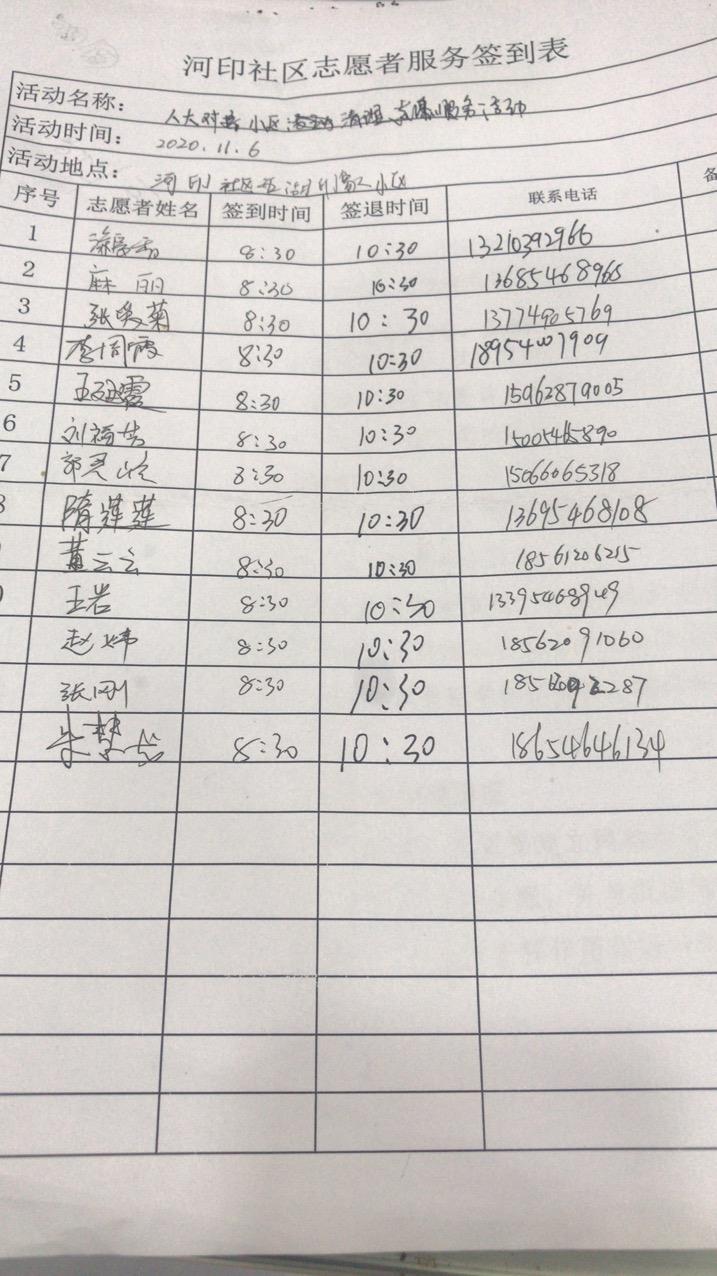 河印社区志愿者服务签到表
活动名称： 小区 清理 志愿服务活动
活动时间： 2020.11.6
活动地点： 河印社区 小区
序号 志愿者姓名 签到时间 签退时间 联系电话
1 8:30 10:30 13210392966
2 麻丽 8:30 10:30 13685468968
3 张 菊 8:30 10:30 13774905769
4 李 霞 8:30 10:30
5 王 霞 8:30 10:30 15962879005
6 刘 8:30 10:30 15005465890
7 郭灵 8:30 10:30 15066065318
隋莲莲 8:30 10:30 13695468108
黄云云 8:30 10:30 18561206215
王岩 8:30 10:30 13395468949
赵炜 8:30 10:30 18562091060
张刚 8:30 10:30
朱慧 8:30 10:30 18654646134